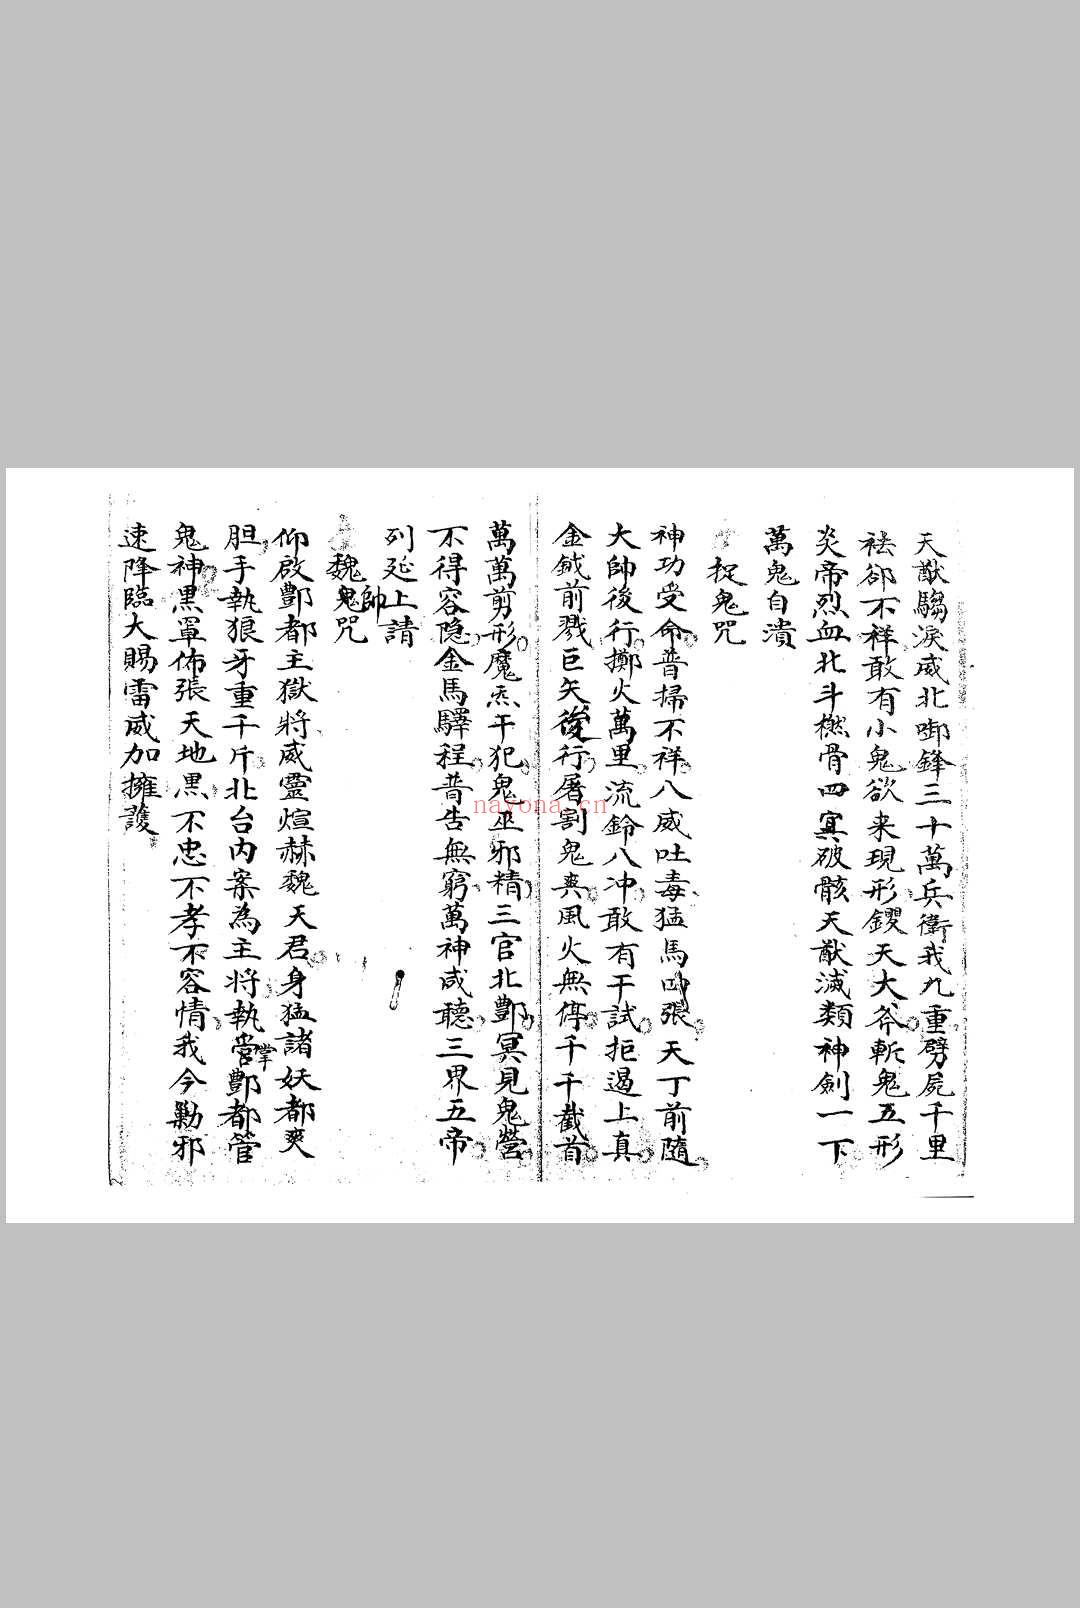 天猷驅淚威北啣鋒三十萬兵衛我九重劈屍千里
袪郤不祥敢有小鬼欲来現形鑊天大斧斬鬼五形
炎帝烈血北斗橪骨四冥破骸天猷滅類神劍一下
萬鬼自潰
捉鬼咒
神功受命普掃不祥八威吐毒猛馬四張天丁前隨
大帥後行擲火萬里流鈴八冲敢有干試拒遏上真
金鉞前戮巨矢後行屠割鬼爽風火無停千千截首
萬萬剪形魔炁干犯鬼巫邪精三官北酆冥見鬼營
不得容隐金馬驛程普告無窮萬神咸聽三界五帝
列延上請
魏鬼帥咒
仰啟酆都主獄將威靈煊赫魏天君身猛諸妖都爽
胆手執狼牙重千斤北台内案為主將執掌酆都管
鬼神黒罩佈張天地黒不忠不孝不容情我今勦邪
速降臨大賜雷威加擁護
nayona.cn